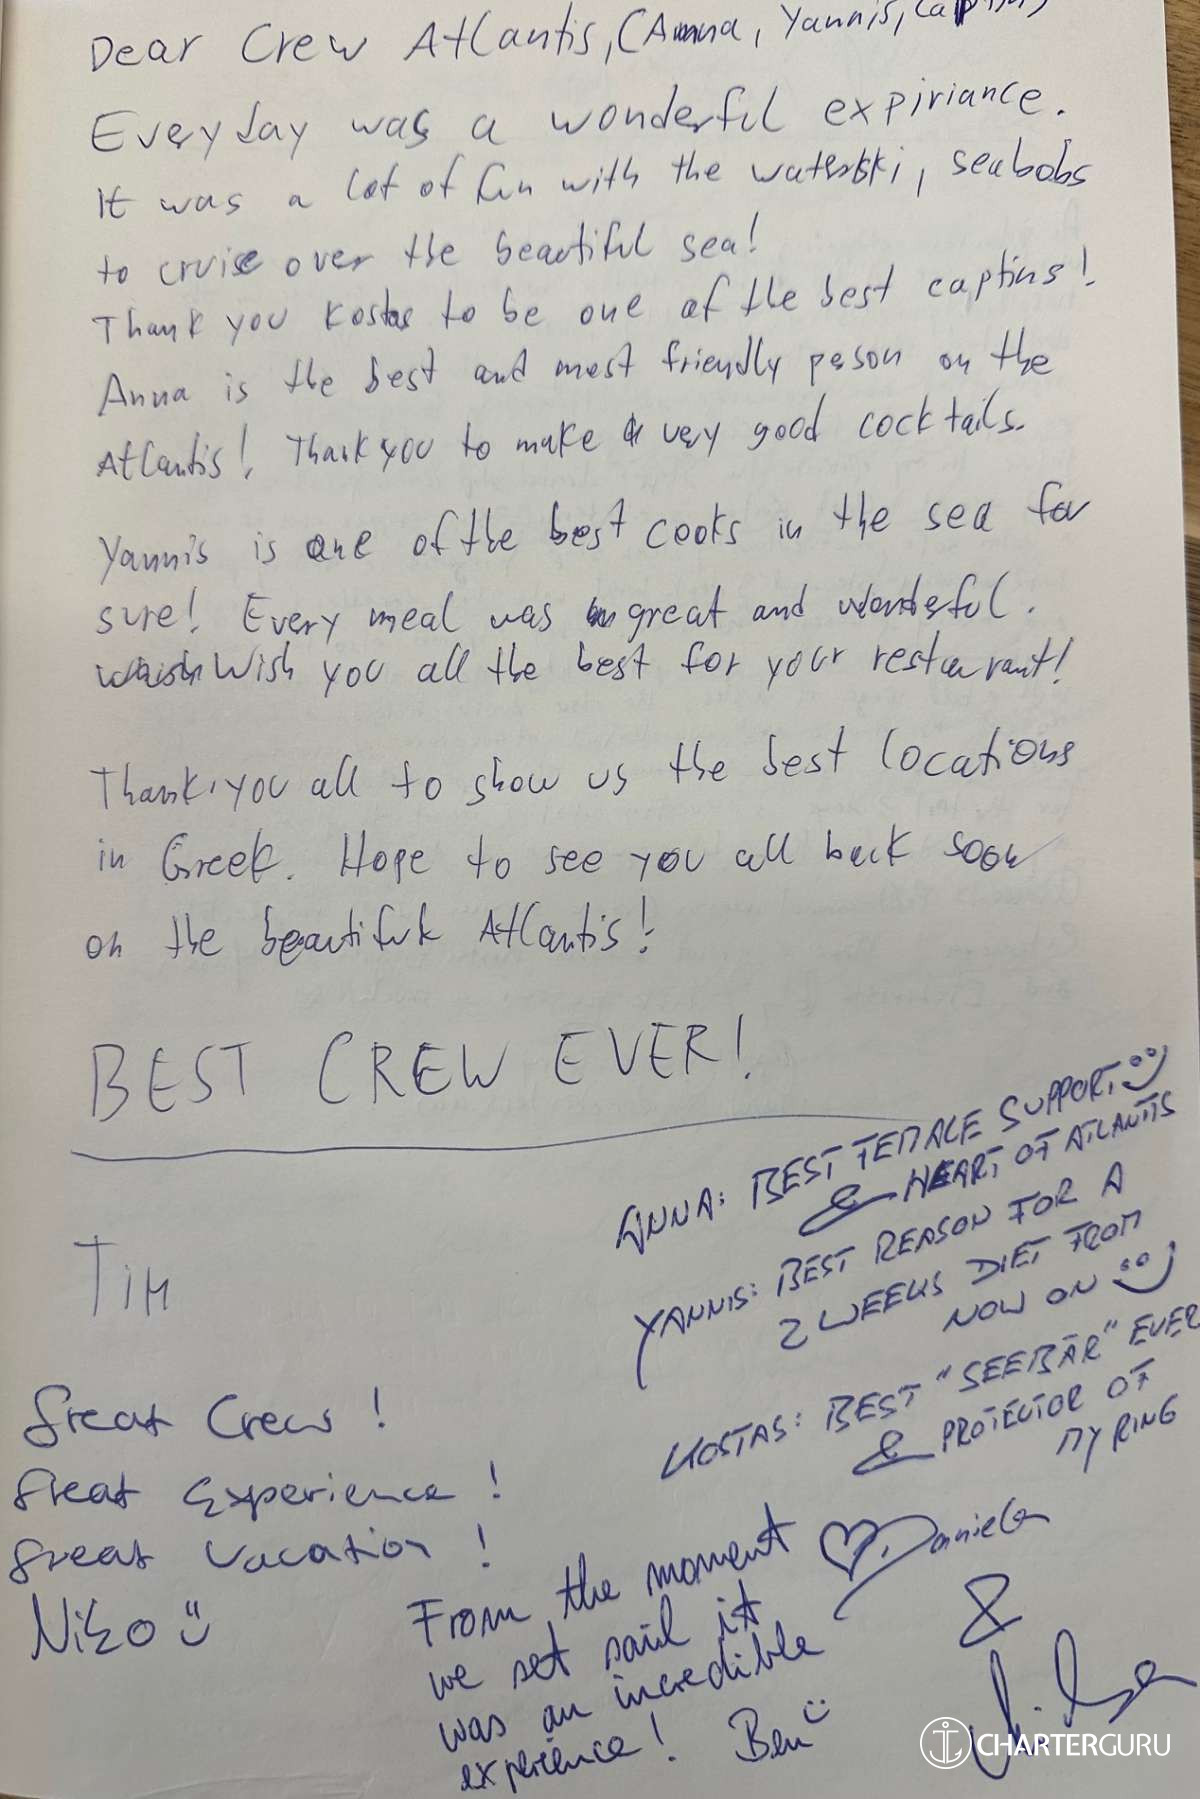 Dear Crew Atlantis, (Anna, Yannis,
Everyday was a wonderful expiriance.
It was a lot of fun with the waterski, seabobs
to cruise over the beautiful sea!
Thank you Kostas to be one of the best captins!
Anna is the best and most friendly peson on the
Atlantis! Thank you to make very good cocktails.
Yannis is one of the best cooks in the sea for
sure! Every meal was great and wonderful.
Wish you all the best for your restaurant!
Thank you all to show us the best locations
in Greek. Hope to see you all back soon
on the beautiful Atlantis!
BEST CREW EVER!
TIM
ANNA: BEST FEMALE SUPPORT
& HEART OF ATLANTIS
YANNIS: BEST REASON FOR A
2 WEEKS DIET FROM
NOW ON
KOSTAS: BEST "SEEBÄR" EVER
& PROTECTOR OF
MY RING
Daniela
&
Great Crew!
Great Experience!
Great Vacation!
Niko
From the moment
we set sail it
was an incredible
experience! Ben
CHARTERGURU